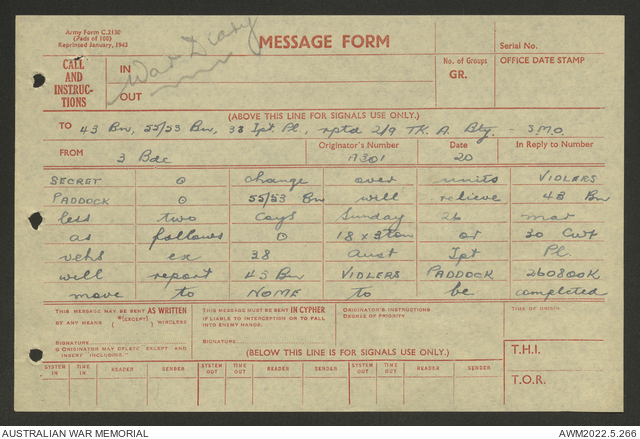 Army Form C.2130
(Pads of 100)
Reprinted January, 1943
War Diary
MESSAGE FORM
Serial No.
CALL AND INSTRUC-TIONS
IN
OUT
No. of Groups
GR.
OFFICE DATE STAMP
(ABOVE THIS LINE FOR SIGNALS USE ONLY.)
TO 43 Bn, 55/53 Bn, 38 Ipt. Pl, rptd 2/9 TK. A. Bty. - S.M.O.
FROM 3 Bde
Originator's Number
A301
Date
20
In Reply to Number
SECRET ⊙ change over units VIDLERS
PADDOCK ⊙ 55/53 Bn will relieve 43 Bn
less two Coys Sunday 26 mar
as follows ⊙ 18 x 3 ton or 30 Cwt
vehs ex 38 Aust Ipt Pl.
will report 43 Bn VIDLERS PADDOCK 260800K
move to NOME to be completed
THIS MESSAGE MAY BE SENT AS WRITTEN
BY ANY MEANS *(EXCEPT) WIRELESS
SIGNATURE
ORIGINATOR MAY DELETE EXCEPT AND
INSERT INCLUDING.
THIS MESSAGE MUST BE SENT IN CYPHER
IF LIABLE TO INTERCEPTION OR TO FALL
INTO ENEMY HANDS.
SIGNATURE
ORIGINATOR'S INSTRUCTIONS
DEGREE OF PRIORITY
TIME OF ORIGIN
(BELOW THIS LINE IS FOR SIGNALS USE ONLY.)
T.H.I.
T.O.R.
SYSTEM IN TIME IN READER SENDER SYSTEM OUT TIME OUT READER SENDER SYSTEM OUT TIME OUT READER SENDER
AUSTRALIAN WAR MEMORIAL
AWM2022.5.266